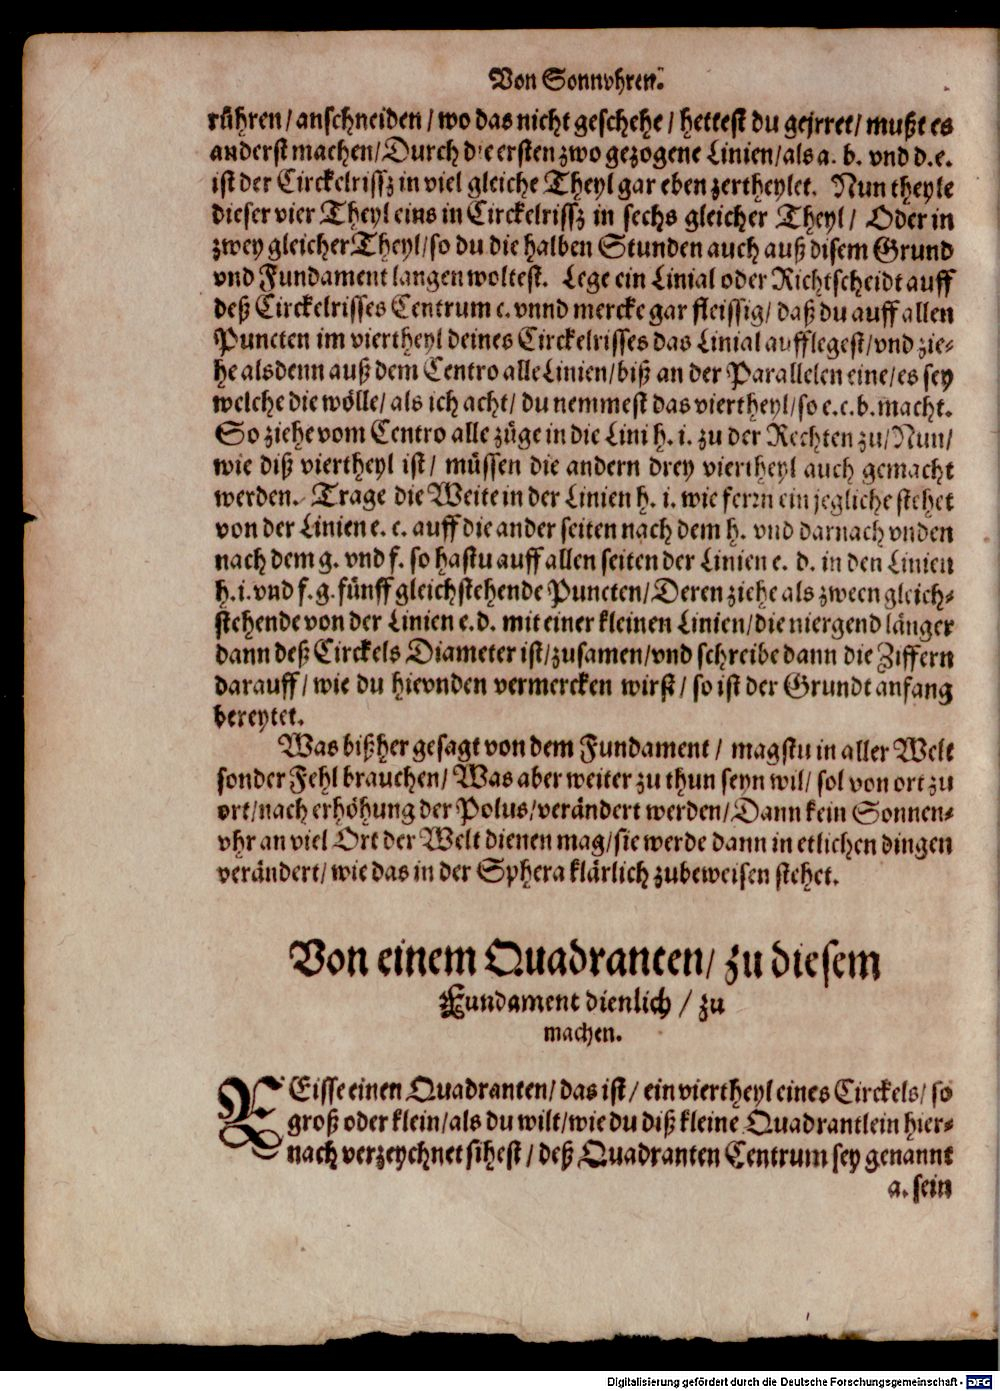 Von Sonnvhren.
rühren/ anschneiden/ wo das nicht geschehe/ hettest du gejrret/ mußt es
anderst machen/ Durch die ersten zwo gezogene Linien/ als a. b. vnd d. e.
ist der Circkelrissz in viel gleiche Theyl gar eben zertheylet. Nun theyle
dieser vier Theyl eins in Circkelrissz in sechs gleicher Theyl/ Oder in
zwey gleicher Theyl/ so du die halben Stunden auch auß disem Grund
vnd Fundament langen woltest. Lege ein Linial oder Richtscheidt auff
deß Circkelrisses Centrum c. vnnd mercke gar fleissig/ daß du auff allen
Puncten im viertheyl deines Circkelrisses das Linial aufflegest/ vnd zie-
he alsdenn auß dem Centro alle Linien/ biß an der Parallelen eine/ es sey
welche die wölle/ als ich acht/ du nemmest das viertheyl/ so e. c. b. macht.
So ziehe vom Centro alle züge in die Lini h. i. zu der Rechten zu/ Nun/
wie diß viertheyl ist/ müssen die andern drey viertheyl auch gemacht
werden. Trage die Weite in der Linien h. i. wie ferrn ein jegliche stehet
von der Linien e. c. auff die ander seiten nach dem h. vnd darnach vnden
nach dem g. vnd f. so hastu auff allen seiten der Linien e. d. in den Linien
h. i. vnd f. g. fünff gleichstehende Puncten/ Deren ziehe als zween gleich-
stehende von der Linien e. d. mit einer kleinen Linien/ die niergend länger
dann deß Circkels Diameter ist/ zusamen/ vnd schreibe dann die Ziffern
darauff/ wie du hievnden vermercken wirst/ so ist der Grundt anfang
bereytet.
Was bißher gesagt von dem Fundament/ magstu in aller Welt
sonder Fehl brauchen/ Was aber weiter zu thun seyn wil/ sol von ort zu
ort/ nach erhöhung der Polus/ verändert werden/ Dann kein Sonnen-
vhr an viel Ort der Welt dienen mag/ sie werde dann in etlichen dingen
verändert/ wie das in der Sphera klärlich zubeweisen stehet.
Von einem Quadranten/ zu diesem
Fundament dienlich/ zu
machen.
REisse einen Quadranten/ das ist/ ein viertheyl eines Circkels/ so
groß oder klein/ als du wilt/ wie du diß kleine Quadrantlein hier-
nach verzeychnet sihest/ deß Quadranten Centrum sey genannt
a. sein
Digitalisierung gefördert durch die Deutsche Forschungsgemeinschaft - DFG